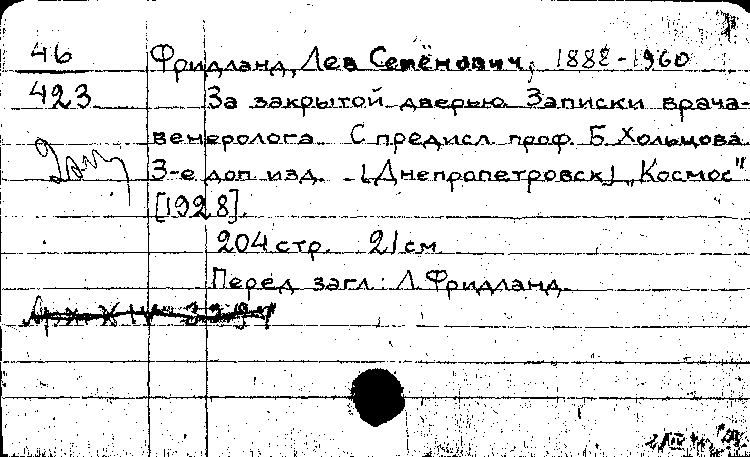 46
423
Фридланд, Лев Семёнович, 1888-1960
За закрытой дверью. Записки врача-
венеролога. С предисл. проф. Б. Хольцова.
3-е доп. изд. [Днепропетровск] „Космос"
[1928].
204 стр. 21 см.
Перед загл.: Л. Фридланд.